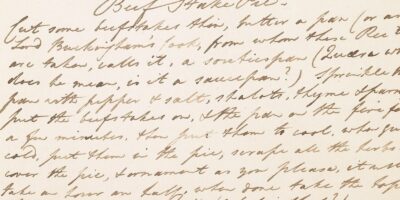 Beef Stake Pie.
Cut some beefstakes thin, butter a pan (or as
Lord Buckingham's Cook, from whom these Rec
are taken, calls it, a soutiespan (Quaera w
does he mean, is it a saucepan?) Sprinkle t
pan with pepper & salt, shalots, thyme & pars
put the beefstakes on, & the pan on the fire fo
a few minutes, then put them to cool, when qu
cold, put them in the pie, scrape all the herbs
cover the pie, & ornament as you please, it w
take an hour an half, when done take the top